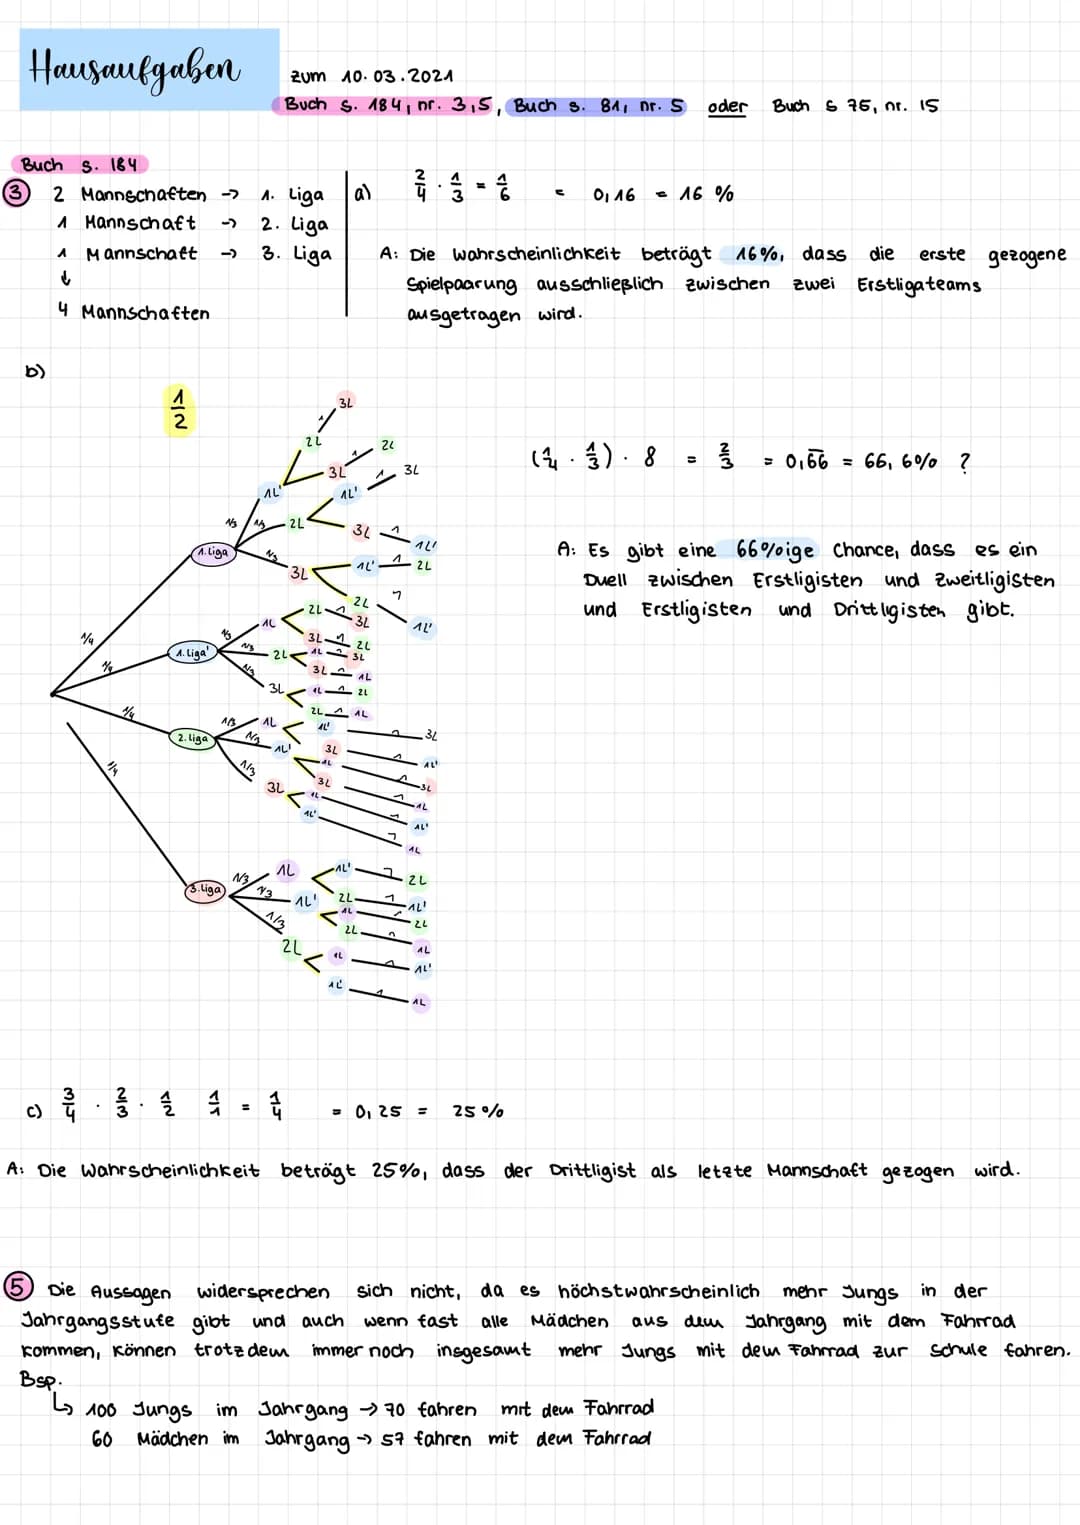 Hausaufgaben
zum 10.03.2021
Buch S. 184, nr. 3,5, Buch S. 81, nr. 5 oder Buch S 76, nr. 15
Buch S. 184
③ 2 Mannschaften -> 1. Liga
1 Mannschaft -> 2. Liga
1 Mannschaft -> 3. Liga
↓
4 Mannschaften
a) 2/4 · 1/3 = 1/6 = 0,16 = 16 %
A: Die Wahrscheinlichkeit beträgt 16%, dass die erste gezogene
Spielpaarung ausschließlich zwischen zwei Erstligateams
ausgetragen wird.
b)
1/2
3L
1
2L
2L
1
3L
3L
1
1L'
1L'
1/3 1/3 2L
3L 1
1L'
1. Liga
1/3
1L' 1 2L
3L
2L 1
1L'
2L 1 3L
1L
1/4
1/3
3L 1 2L
1. Liga'
1/3 2L 1L 1 3L
1/4
1/3
3L 1 1L
3L 1L 1 2L
2L 1 1L
1/4
1/3 1L
1L' 1 3L
2. Liga
1/3 1L'
3L 1 1L'
1L 1 3L
1/4
1/3
3L 1 1L
3L
1L 1 1L'
1L' 1 1L
1/3 1L
1L' 1 2L
3. Liga
1/3 1L'
2L 1 1L'
1L 1 2L
1/3
2L 1 1L
2L
1L 1 1L'
1L' 1 1L
(1/4 · 1/3) · 8 = 2/3 = 0,66 = 66,6% ?
A: Es gibt eine 66%ige Chance, dass es ein
Duell zwischen Erstligisten und Zweitligisten
und Erstligisten und Drittligisten gibt.
c) 3/4 · 2/3 · 1/2 1/1 = 1/4 = 0,25 = 25 %
A: Die Wahrscheinlichkeit beträgt 25%, dass der Drittligist als letzte Mannschaft gezogen wird.
⑤ Die Aussagen widersprechen sich nicht, da es höchstwahrscheinlich mehr Jungs in der
Jahrgangsstufe gibt und auch wenn fast alle Mädchen aus dem Jahrgang mit dem Fahrrad
kommen, können trotzdem immer noch insgesamt mehr Jungs mit dem Fahrrad zur Schule fahren.
Bsp.
↳ 100 Jungs im Jahrgang -> 70 fahren mit dem Fahrrad
60 Mädchen im Jahrgang -> 57 fahren mit dem Fahrrad